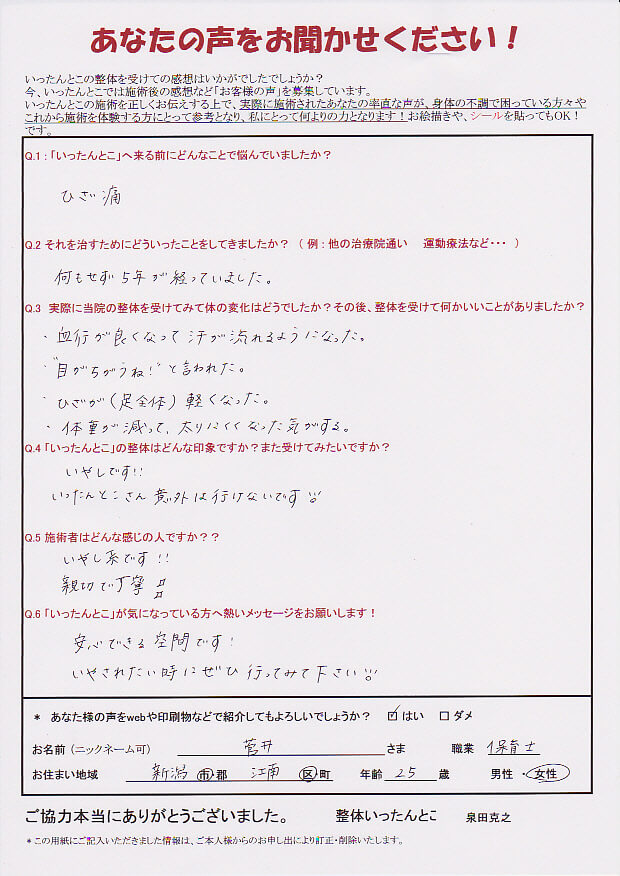 あなたの声をお聞かせください！
いったんとこの整体を受けての感想はいかがでしたでしょうか？
今、いったんとこでは施術後の感想など「お客様の声」を募集しています。
いったんとこの施術を正しくお伝えする上で、実際に施術されたあなたの率直な声が、身体の不調で困っている方々や
これから施術を体験する方にとって参考となり、私にとって何よりの力となります！お絵描きや、シールを貼ってもOK！
です。
Q.1：「いったんとこ」へ来る前にどんなことで悩んでいましたか？
ひざ痛
Q.2 それを治すためにどういったことをしてきましたか？（例：他の治療院通い　運動療法など・・・）
何もせず5年が経っていました。
Q.3 実際に当院の整体を受けてみて体の変化はどうでしたか？その後、整体を受けて何かいいことがありましたか？
・血行が良くなって汗が流れるようになった。
・"目がちがうね！"と言われた。
・ひざが（足全体）軽くなった。
・体重が減って、太りにくくなった気がする。
Q.4「いったんとこ」の整体はどんな印象ですか？また受けてみたいですか？
いやしです!!
いったんとこさん意外は行けないです!!!
Q.5 施術者はどんな感じの人ですか？？
いやし系です!!
親切で丁寧♫
Q.6「いったんとこ」が気になっている方へ熱いメッセージをお願いします！
安心できる空間です！
いやされたい時にぜひ行ってみて下さい!!!
* あなた様の声をwebや印刷物などで紹介してもよろしいでしょうか？ ☑はい □ダメ
お名前（ニックネーム可） 菅井 さま 職業 保育士
お住まい地域 新潟 市・郡 江南 区・町 年齢 25 歳 男性・女性
ご協力本当にありがとうございました。 整体いったんとこ 泉田克之
*この用紙にご記入いただきました情報は、ご本人様からのお申し出により訂正・削除いたします。